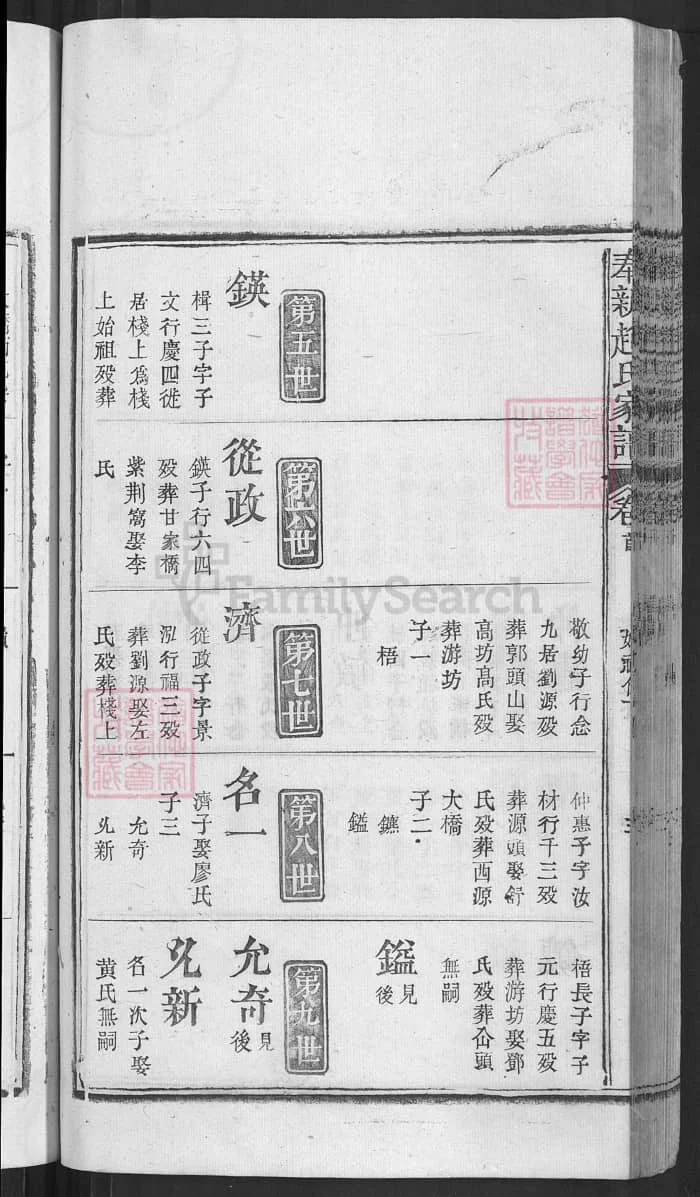 奉新趙氏家譜 卷首
敬幼子行念
九居劉源殁
葬郭頭山娶
高坊高氏殁
葬游坊
子一
梧
仲惠子字汝
材行千三殁
葬源頭娶舒
氏殁葬西源
大橋
子二
鑣
鎰
梧長子字子
元行慶五殁
葬游坊娶鄧
氏殁葬仚頭
無嗣
鎰 見後
第五世
鍈
楫三子字子
文行慶四徙
居棧上為棧
上始祖殁葬
第六世
從政
鍈子行六四
殁葬甘家橋
紫荆窩娶李
氏
第七世
濟
從政子字景
泓行福三殁
葬劉源娶左
氏殁葬棧上
第八世
名一
濟子娶廖氏
子三
允奇
允新
第九世
允奇 見後
允新
名一次子娶
黃氏無嗣
FamilySearch